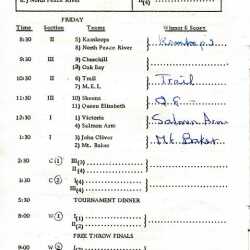 FRIDAY
Time Section Teams Winner & Score
8:30 II 5) Kamloops
8) North Peace River Kamloops
9:50 III 9) Churchill
12) Oak Bay
8:30 II 6) Trail
7) M.E.I. Trail
11:10 III 10) Skeena
11) Queen Elizabeth Q.E.
12:30 I 1) Victoria
4) Salmon Arm Salmon Arm
1:30 I 3) John Oliver
2) Mt. Baker Mt. Baker
2:30 C(1) III(3)
II(4)
3:50 C(2) I(3)
III(4)
5:30 TOURNAMENT DINNER
8:00 W(1) I(1)
II(2)
FREE THROW FINALS
9:00 W(2)